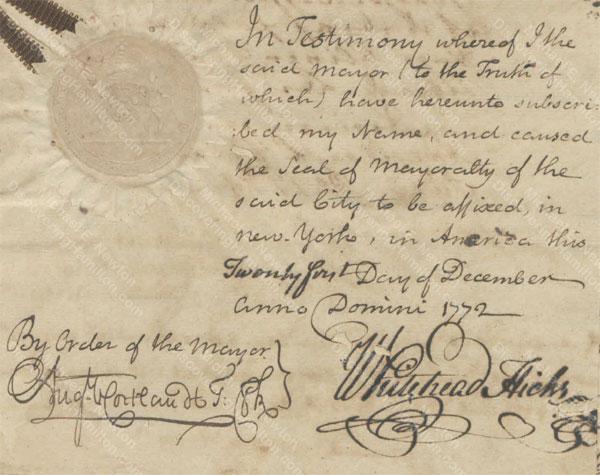 In Testimony whereof I the
said Mayor (to the Truth of
which) have hereunto subscri-
:bed my Name, and caused
the Seal of Mayoralty of the
said City to be affixed, in
new-York, in America this
Twenty first Day of December
Anno Domini 1772
By Order of the Mayor
Augt. V Cortlandt
Whitehead Hicks